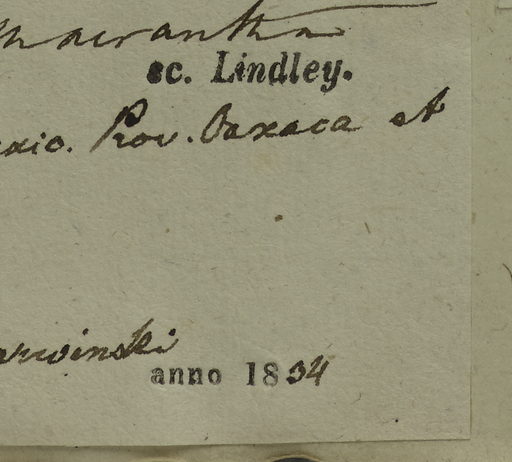 macrantha
sc. Lindley.
xio. Prov. Oaxaca et
arwinski
anno 1834